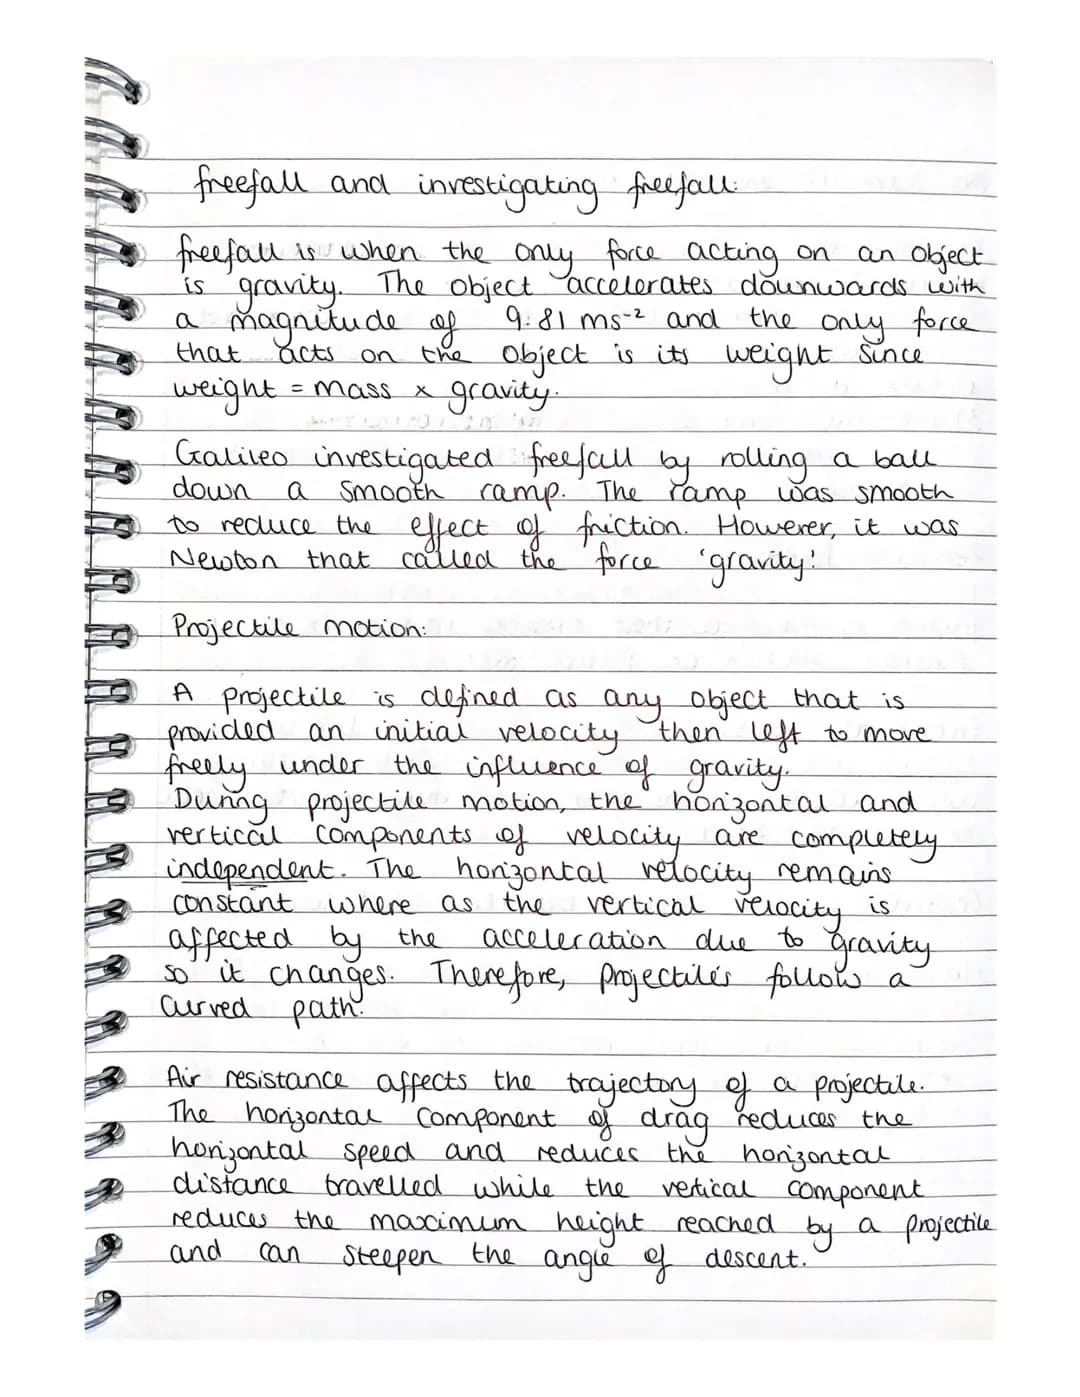 freefall and investigating freefall:
freefall is when the only force acting on an object
is gravity. The object accelerates downwards with
a magnitude of 9.81 ms-2 and the only force
that acts on the object is its weight since
weight = mass x gravity.
Galileo investigated freefall by rolling a ball
down a smooth ramp. The ramp was smooth
to reduce the effect of friction. However, it was
Newton that called the force 'gravity'.
Projectile motion:
A projectile is defined as any object that is
provided an initial velocity then left to move
freely under the influence of gravity.
During projectile motion, the horizontal and
vertical components of velocity are completely
independent. The horizontal velocity remains
constant where as the vertical velocity is
affected by the acceleration due to gravity
so it changes. Therefore, projectile's follow a
curved path.
Air resistance affects the trajectory of a projectile.
The horizontal component of drag reduces the
horizontal speed and reduces the horizontal
distance travelled while the vetical component
reduces the maximum height reached by a projectile
and can steepen the angle of descent.